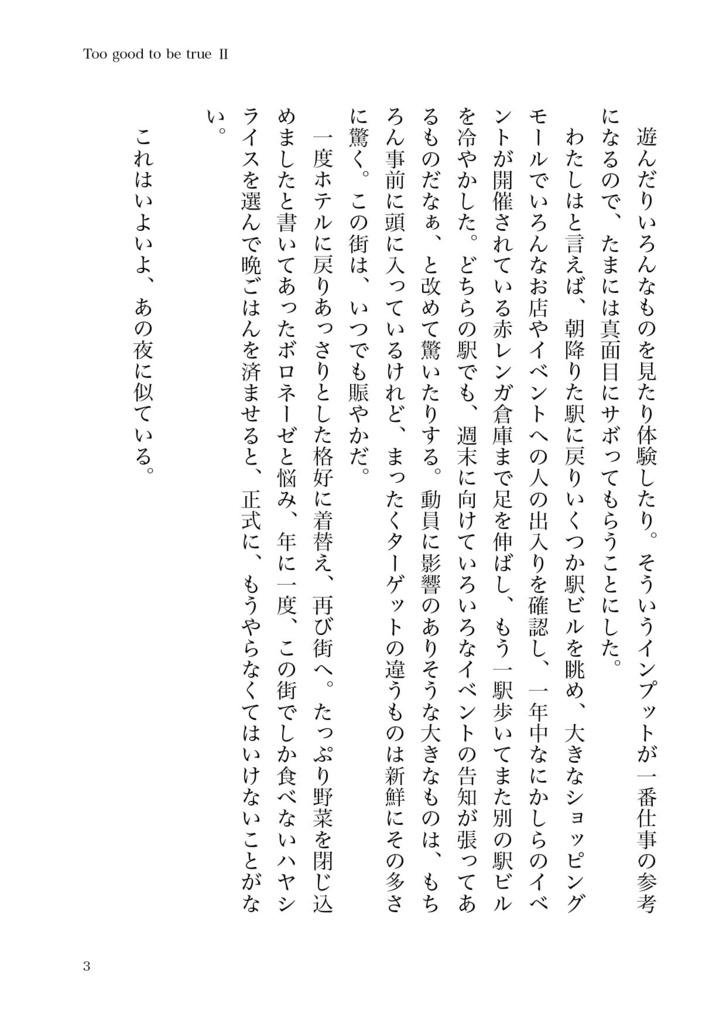 Too good to be true Ⅱ
遊んだりいろんなものを見たり体験したり。そういうインプットが一番仕事の参考
になるので、たまには真面目にサボってもらうことにした。
わたしはと言えば、朝降りた駅に戻りいくつか駅ビルを眺め、大きなショッピング
モールでいろんなお店やイベントへの人の出入りを確認し、一年中なにかしらのイベ
ントが開催されている赤レンガ倉庫まで足を伸ばし、もう一駅歩いてまた別の駅ビル
を冷やかした。どちらの駅でも、週末に向けていろいろなイベントの告知が張ってあ
るものだなぁ、と改めて驚いたりする。動員に影響のありそうな大きなものは、もち
ろん事前に頭に入っているけれど、まったくターゲットの違うものは新鮮にその多さ
に驚く。この街は、いつでも賑やかだ。
一度ホテルに戻りあっさりとした格好に着替え、再び街へ。たっぷり野菜を閉じ込
めましたと書いてあったボロネーゼと悩み、年に一度、この街でしか食べないハヤシ
ライスを選んで晩ごはんを済ませると、正式に、もうやらなくてはいけないことがな
い。
これはいよいよ、あの夜に似ている。
3